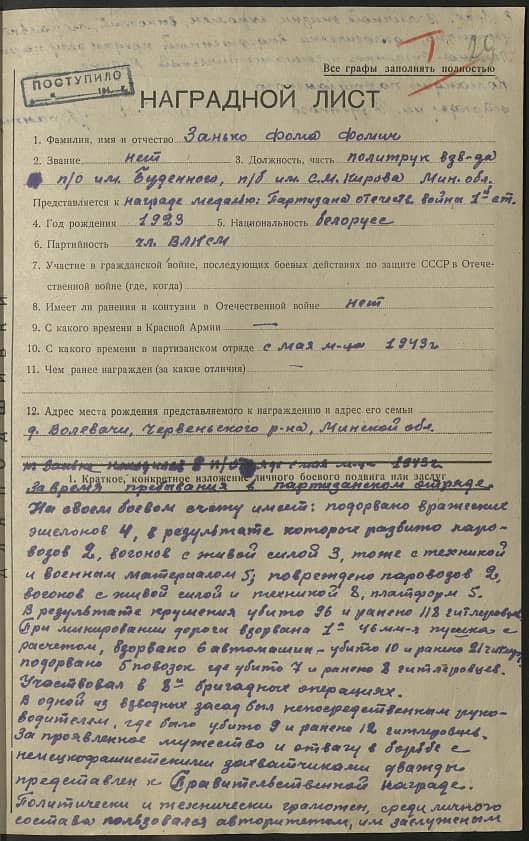 Т 29
Все графы заполнять полностью
ПОСТУПИЛО
194 г.
НАГРАДНОЙ ЛИСТ
1. Фамилия, имя и отчество Занько Фома Фомич
2. Звание нет 3. Должность, часть политрук взв-да
п/о им. Буденного, п/б им. С.М. Кирова Мин. обл.
Представляется к награде медалью: Партизана отечеств. война 1й ст.
4. Год рождения 1923 5. Национальность белорусс
6. Партийность чл. ВЛКСМ
7. Участие в гражданской войне, последующих боевых действиях по защите СССР в Отече-
ственной войне (где, когда)
8. Имеет ли ранения и контузии в Отечественной войне нет
9. С какого времени в Красной Армии —
10. С какого времени в партизанском отряде с мая м-ца 1943г
11. Чем ранее награжден (за какие отличия) —
12. Адрес места рождения представляемого к награждению и адрес его семьи
д. Волевачи, Червеньского р-на, Минской обл.
т. Занько находился в п/отряде с мая м-ца 1943г.
1. Краткое, конкретное изложение личного боевого подвига или заслуг
За время пребывания в партизанском отряде
На своем боевом счету имеет: подорвано вражеских
эшелонов 4, в результате которых разбито паро-
возов 2, вогонов с живой силой 3, тоже с техникой
и военным материалом 5; повреждено паровозов 2,
вогонов с живой силой и техникой 8, платформ 5.
В результате крушения убито 96 и ранено 118 гитлеровцев.
При минировании дороги взорвана 1а 46мм-я пушка с
расчетом, взорвано 6 автомашин - убито 10 и ранено 21 гитлер.
подорвано 5 повозок где убито 7 и ранено 8 гитлеровцев.
Участвовал в 8ми бригадных операциях.
В одной из взводных засад был непосредственным руко-
водителем, где было убито 9 и ранено 12 гитлеровцев.
За проявленное мужество и отвагу в борьбе с
немецкофашистскими захватчиками дважды
представлен к Правительственной награде.
Политически и технически грамотен, среди личного
состава пользовался авторитетом, им заслуженым